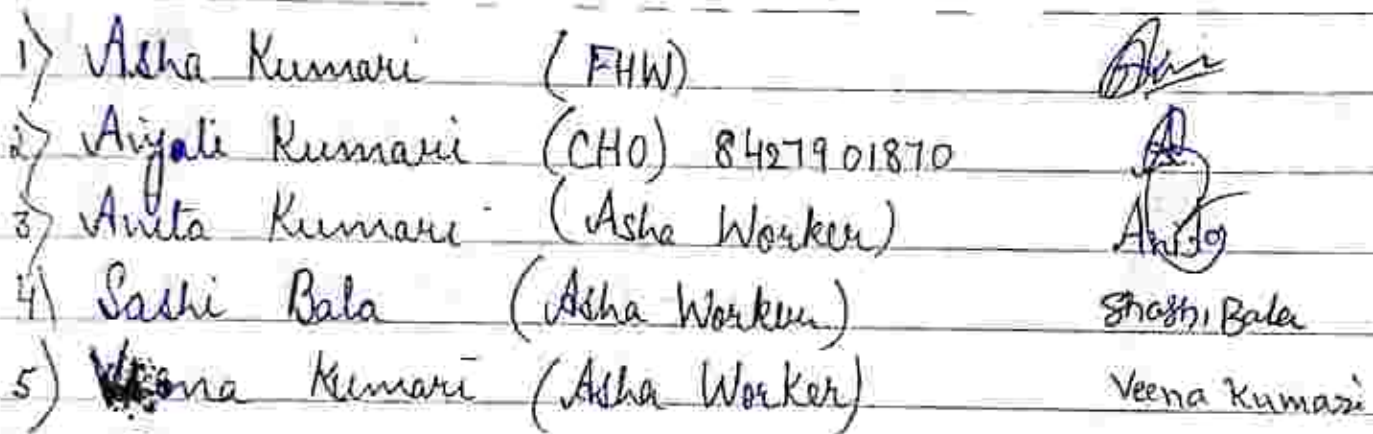 1) Asha Kumari (FHW)
2) Anjali Kumari (CHO) 8427901870
3) Anita Kumari (Asha Worker) Anita
4) Sashi Bala (Asha Worker) Shashi Bala
5) Kumari (Asha Worker) Veena Kumari